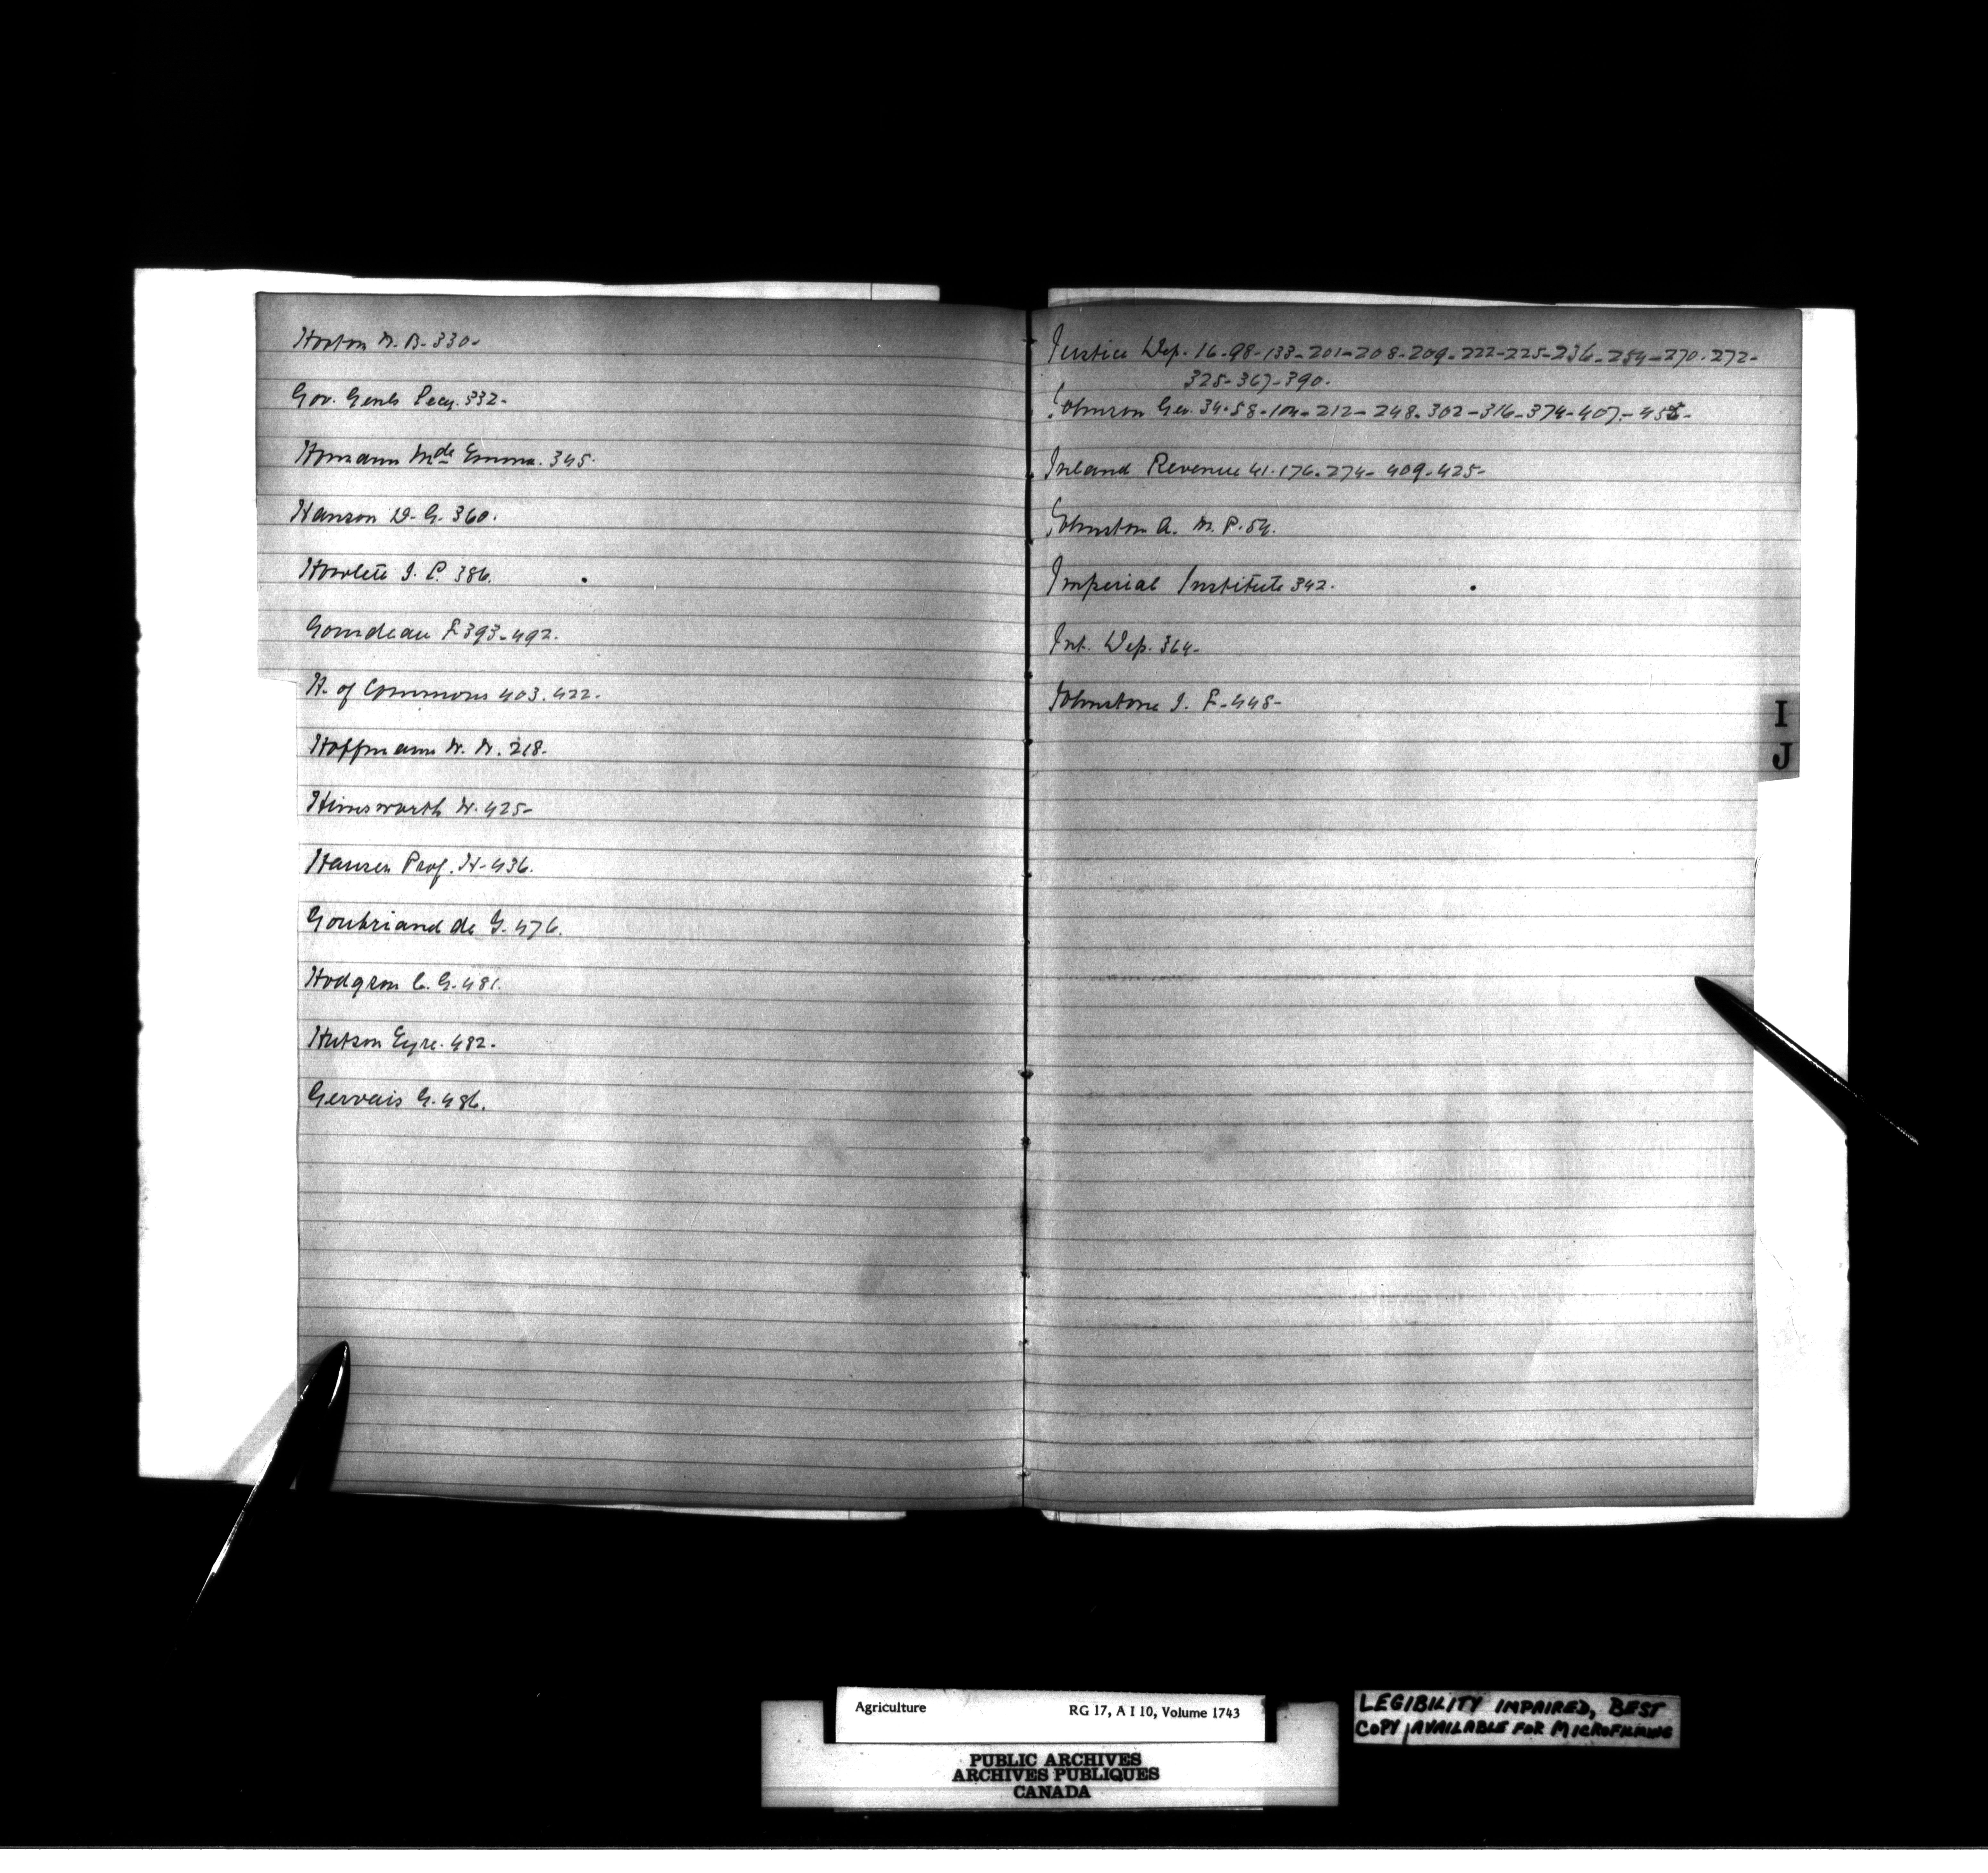 Horton W. B. 330-
Gov. Genls Secy. 332-
Homann Mde Emma. 345.
Hanson D. G. 360.
Howlett J. P. 386.
Gourdeau F 393-492.
H. of Commons 403. 422.
Hoffmann W. W. 218-
Himsworth W. 425-
Hansen Prof. H- 436.
Goubriand de G. 476.
Hodgson C. G. 481.
Hutson Eyre. 482-
Gervais G. 486.
Justice Dep. 16-98-133-201-208-209-222-225-236-254-270-272-
325-367-390.
Johnson Geo. 34-58-104-212-248-302-316-374-407-
Inland Revenue 41-176-274-409-425-
Johnston A. M. P. 54.
Imperial Institute 342.
Int. Dep. 364-
Johnstone J. F-448-
I
J
Agriculture RG 17, A I 10, Volume 1743
PUBLIC ARCHIVES
ARCHIVES PUBLIQUES
CANADA
LEGIBILITY IMPAIRED, BEST
COPY AVAILABLE FOR MICROFILMING